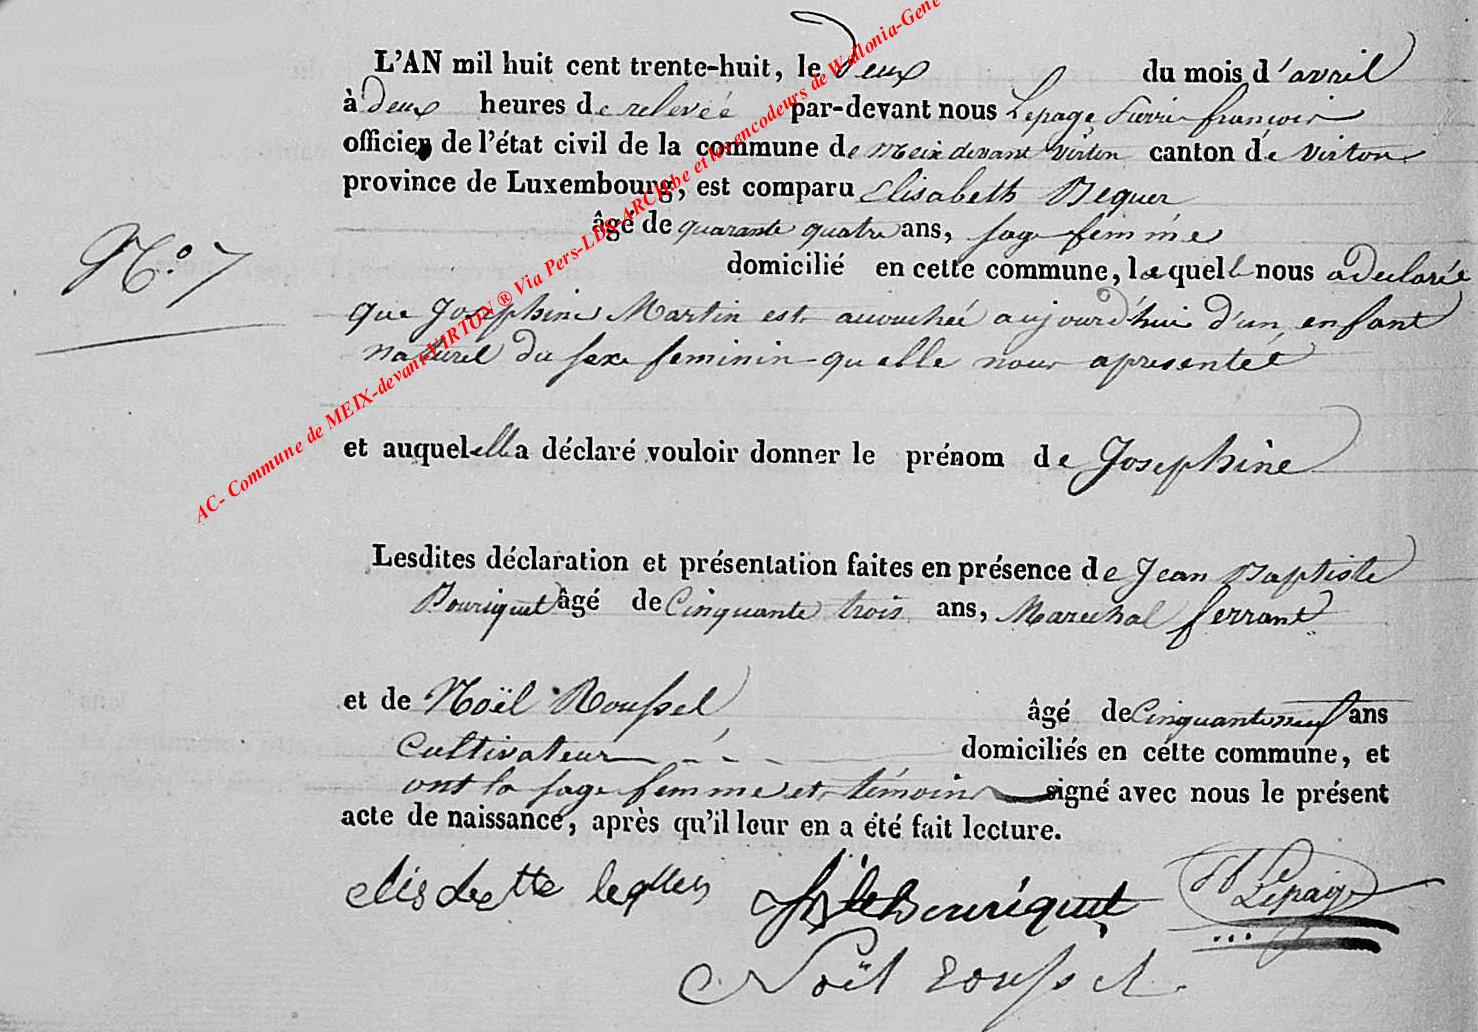 L'AN mil huit cent trente-huit, le deux du mois d'avril
à deux heures de relevée par-devant nous Lepage Pierre françois
officier de l'état civil de la commune de Meix devant Virton canton de Virton
province de Luxembourg, est comparu Elisabeth Bequer
âgé de quarante quatre ans, sage femme
N.o 7
domicilié en cette commune, laquelle nous a declarée
que Josephine Martin est accouchée aujourd'hui d'un enfant
naturel du sexe feminin quelle nous apresentée
et auquel elle a déclaré vouloir donner le prénom de Josephine
Lesdites déclaration et présentation faites en présence de Jean Baptiste
Bouriquet âgé de Cinquante trois ans, Marechal ferrant
et de Noël Roussel âgé de Cinquante neuf ans
Cultivateur domiciliés en cette commune, et
ont la sage femme et témoins signé avec nous le présent
acte de naissance, après qu'il leur en a été fait lecture.
Bouriquet Lepage
Noël roussel
AC- Commune de MEIX-devant-VIRTON ® Via Pers-LDS-ARCH.be et les encodeurs de Wallonia-Gene